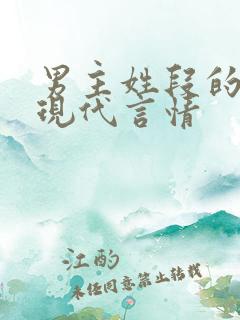 男主姓段的
现代言情
江酌
未经同意禁止转载